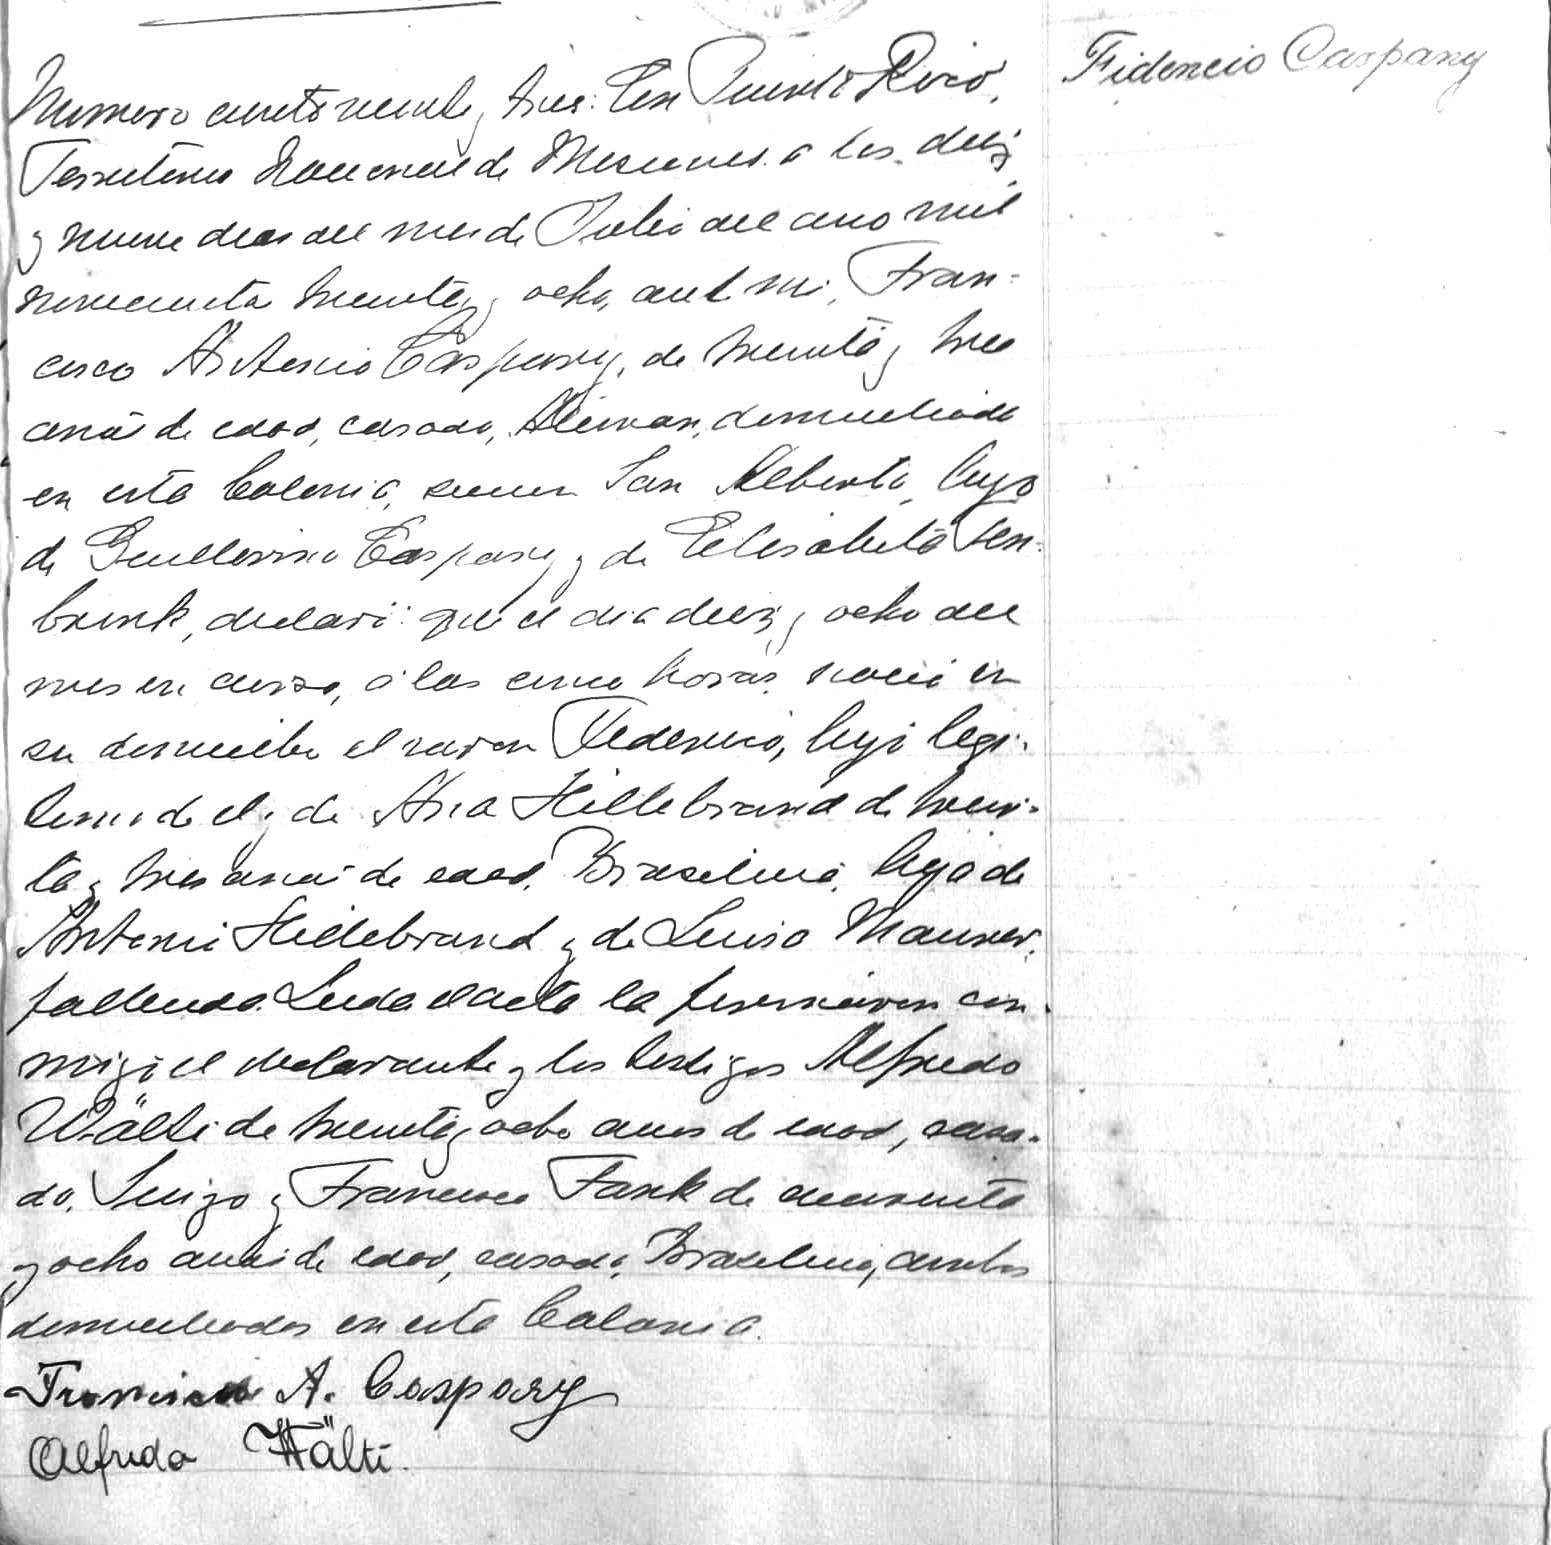 Numero ciento veinte y tres: En Puerto Rico,
Fidencio Caspary
Territorio Nacional de Misiones a los diez
y nueve dias del mes de Julio del ano mil
novecientos treinta y ocho, ante mi, Fran-
cisco Antonio Caspary, de treinta y tres
anos de edad, casado, Aleman, domiciliado
en esta Colonia, San Alberto, hijo
de Guillermo Caspary y de Elisabeta Ten-
brink, declaró: que el dia diez y ocho del
mes en curso, a las cinco horas nació en
su domicilio el varon Fidencio, hijo legi-
timo de el y de Ana Hillebrand de trein-
ta y tres anos de edad, Brasilera, hija de
Antonio Hillebrand y de Luisa Maurer,
fallecida. Leida el acta la firmaron con-
migo el declarante y los testigos Alfredo
Wälti de treinta y ocho anos de edad, casa-
do, Suizo y Francisco Fank de cuarenta
y ocho anos de edad, casado, Brasilero, ambos
domiciliados en esta Colonia.
Francisco A. Caspary
Alfredo Wälti.